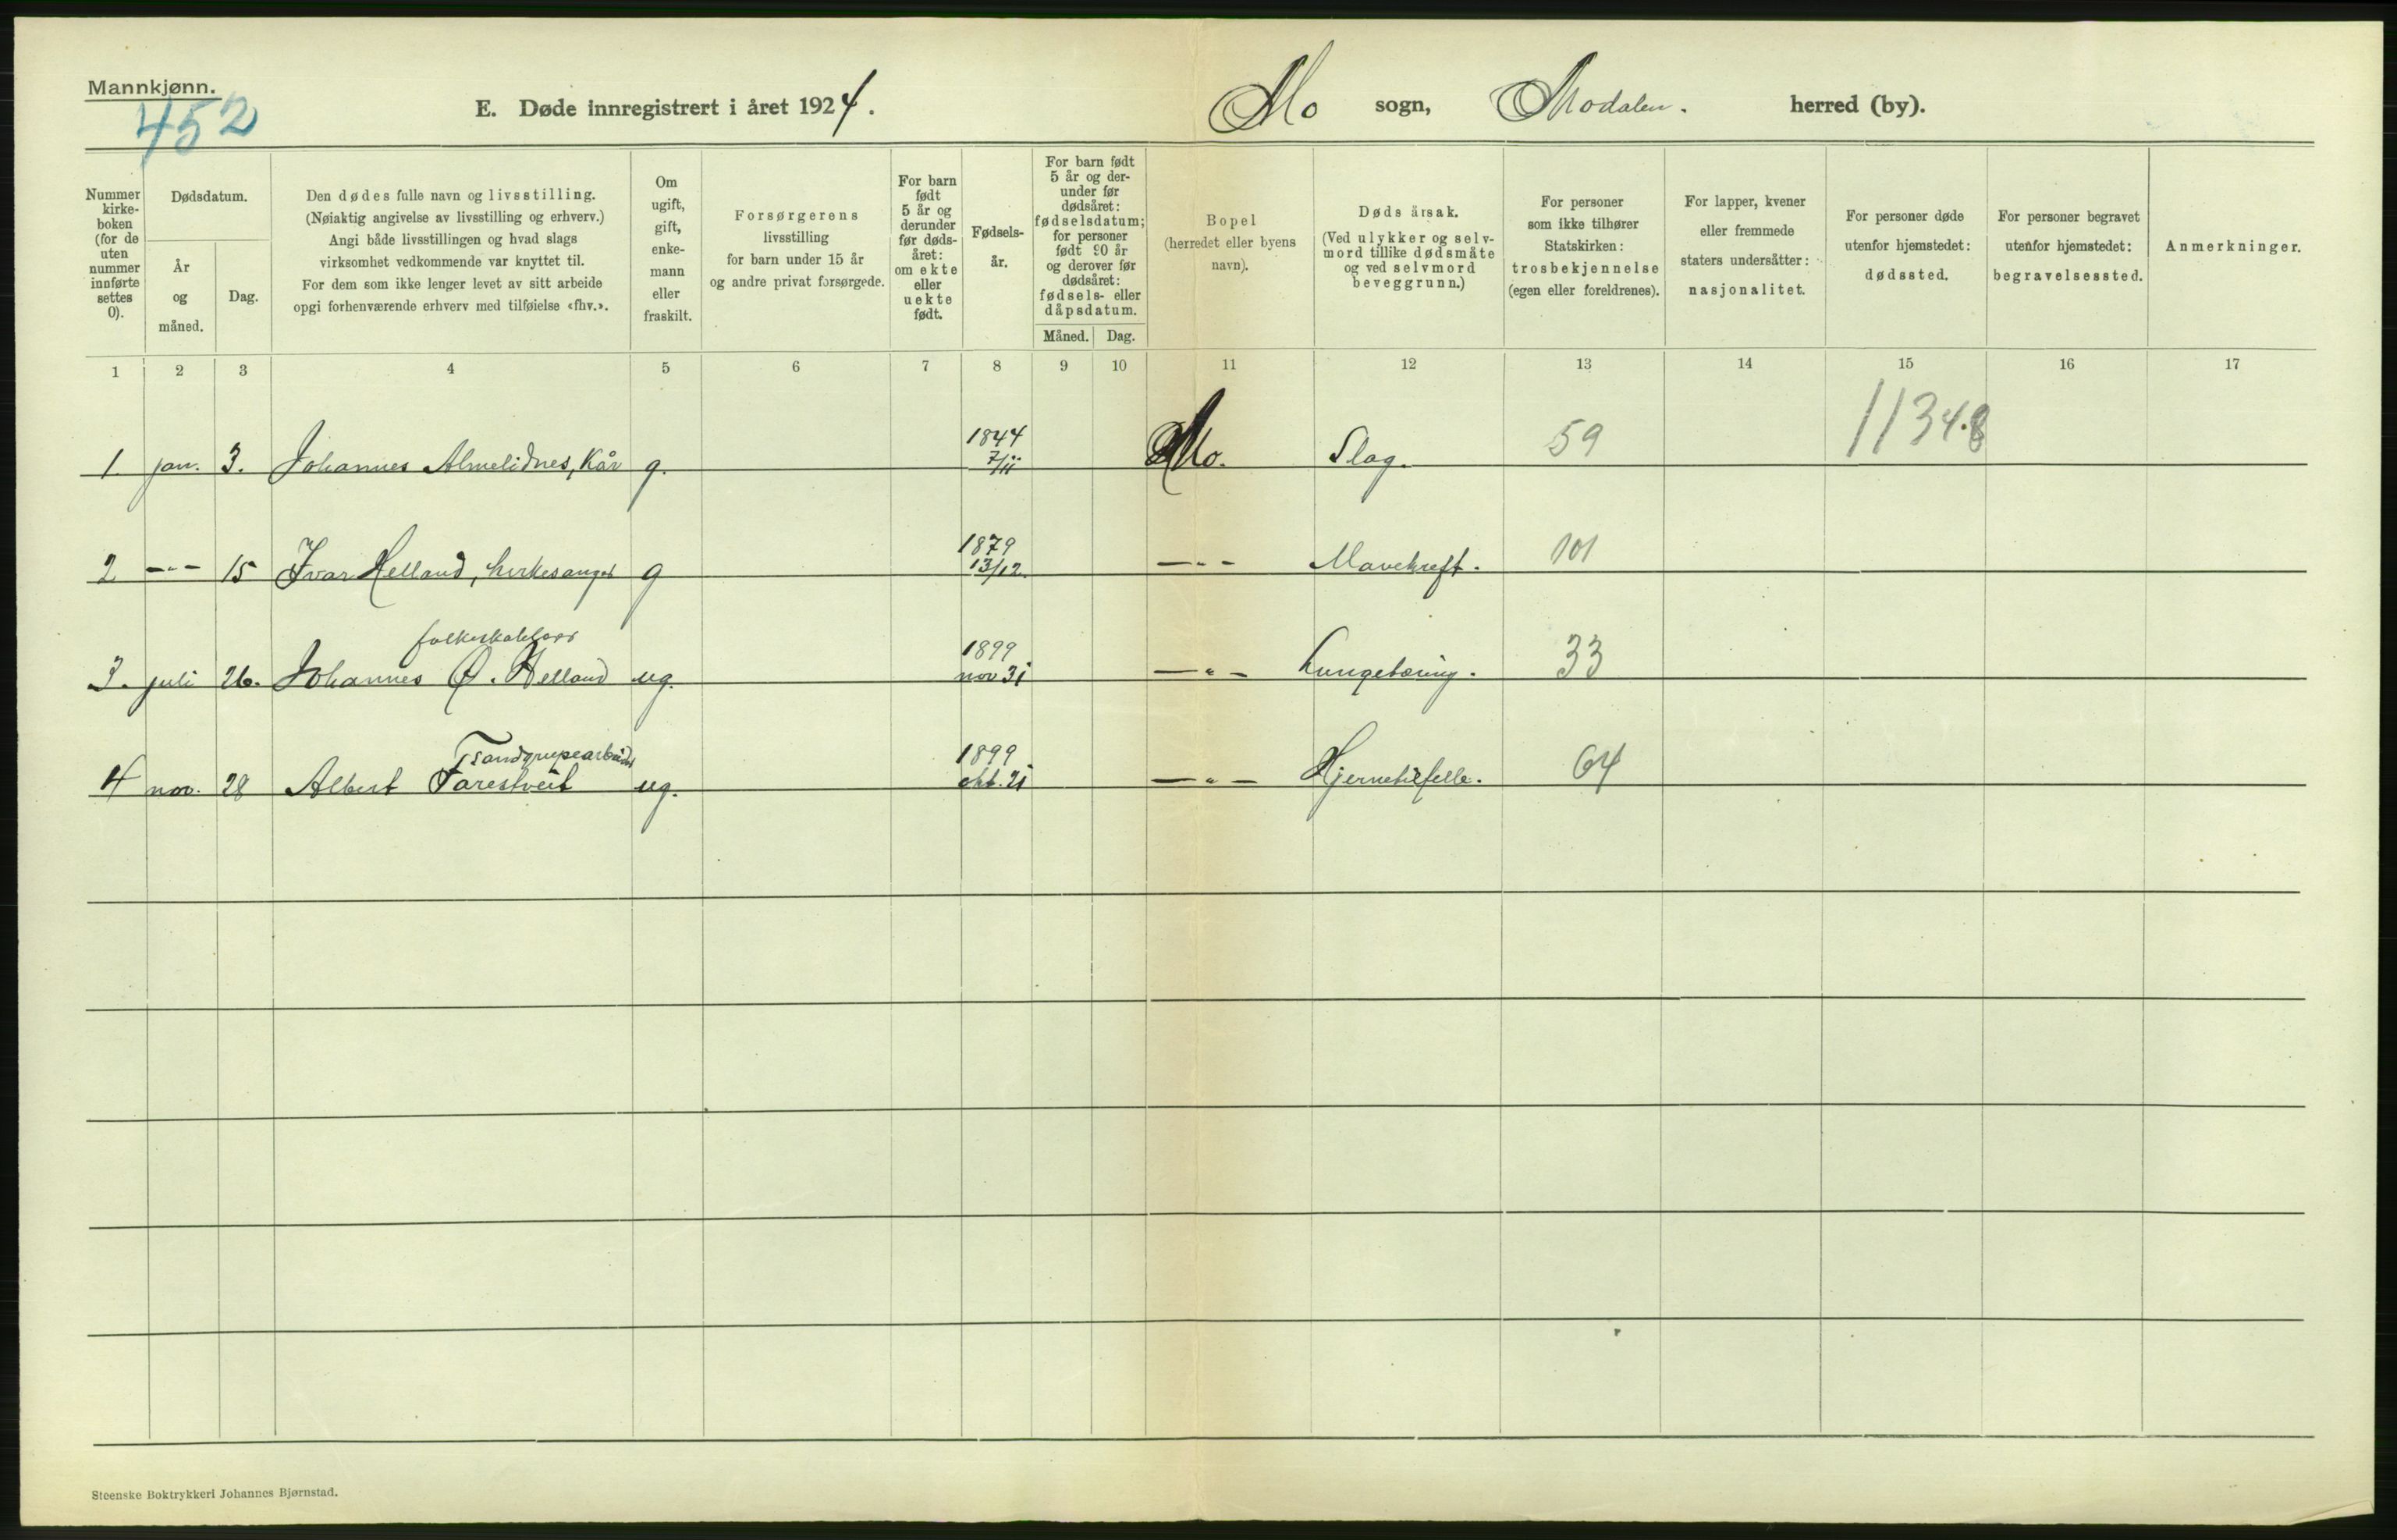 Mannkjønn.
452
E. Døde innregistrert i året 1924.
Mo sogn, Modalen. herred (by).
Nummer
kirke-
boken
(for de
uten
nummer
innførte
settes
0).
Dødsdatum.
År
og
måned.
Dag.
Den dødes fulle navn og livsstilling.
(Nøiaktig angivelse av livsstilling og erhverv.)
Angi både livsstillingen og hvad slags
virksomhet vedkommende var knyttet til.
For dem som ikke lenger levet av sitt arbeide
opgi forhenværende erhverv med tilføielse «fhv.».
Om
ugift,
gift,
enke-
mann
eller
fraskilt.
Forsørgerens
livsstilling
for barn under 15 år
og andre privat forsørgede.
For barn
født
5 år og
derunder
før døds-
året:
om ekte
eller
uekte
født.
Fødsels-
år.
For barn født
5 år og der-
under før
dødsåret:
fødselsdatum;
for personer
født 90 år
og derover før
dødsåret:
fødsels- eller
dåpsdatum.
Måned. Dag.
Bopel
(herredet eller byens
navn).
Dødsårsak.
(Ved ulykker og selv-
mord tillike dødsmåte
og ved selvmord
beveggrunn.)
For personer
som ikke tilhører
Statskirken:
trosbekjennelse
(egen eller foreldrenes).
For lapper, kvener
eller fremmede
staters undersåtter:
nasjonalitet.
For personer døde
utenfor hjemstedet:
dødssted.
For personer begravet
utenfor hjemstedet:
begravelsessted.
Anmerkninger.
1 2 3 4 5 6 7 8 9 10 11 12 13 14 15 16 17
11348
1844
1. jan. 3. Johannes Almelidnes, Kår g. 7/11 Mo. Slag. 59
1879
2 —"— 15 Ivar Helland, g 13/12. —"— Mavekreft. 101
1899
3. juli 26. Johannes Ø. Helland ug. nov 31 —"— 33
1899
4 nov. 28 Albert Farestveit ug. okt. 21 —"— Hjernetilfelle. 64
Steenske Boktrykkeri Johannes Bjørnstad.